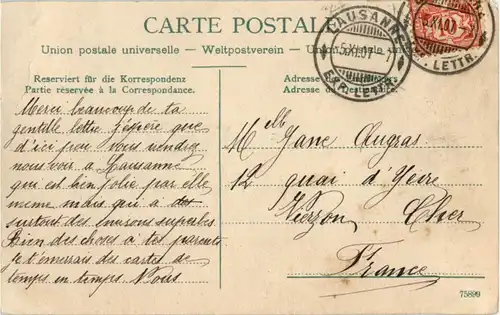 CARTE POSTALE
Union postale universelle. – Weltpostverein. – Union postale universale
Reserviert für die Korrespondenz
Partie réservée à la Correspondance.
Adresse
Adresse du destinataire.
LAUSANNE
5.XI.07
EXP. LETTR.
XI.07
LETTR.
Merci beaucoup de ta
gentille lettre j'espère que
d'ici peu vous viendrez
nous voir à Lausanne
qui est bien jolie par elle
meme mais qui a des
surtout des environs superbes
Bien des choses à tes parents
Je t'enverrais des cartes de
temps en temps. Nous
Melle Jane Augras
12 quai d'Yèvre
Vierzon Cher
France
75899